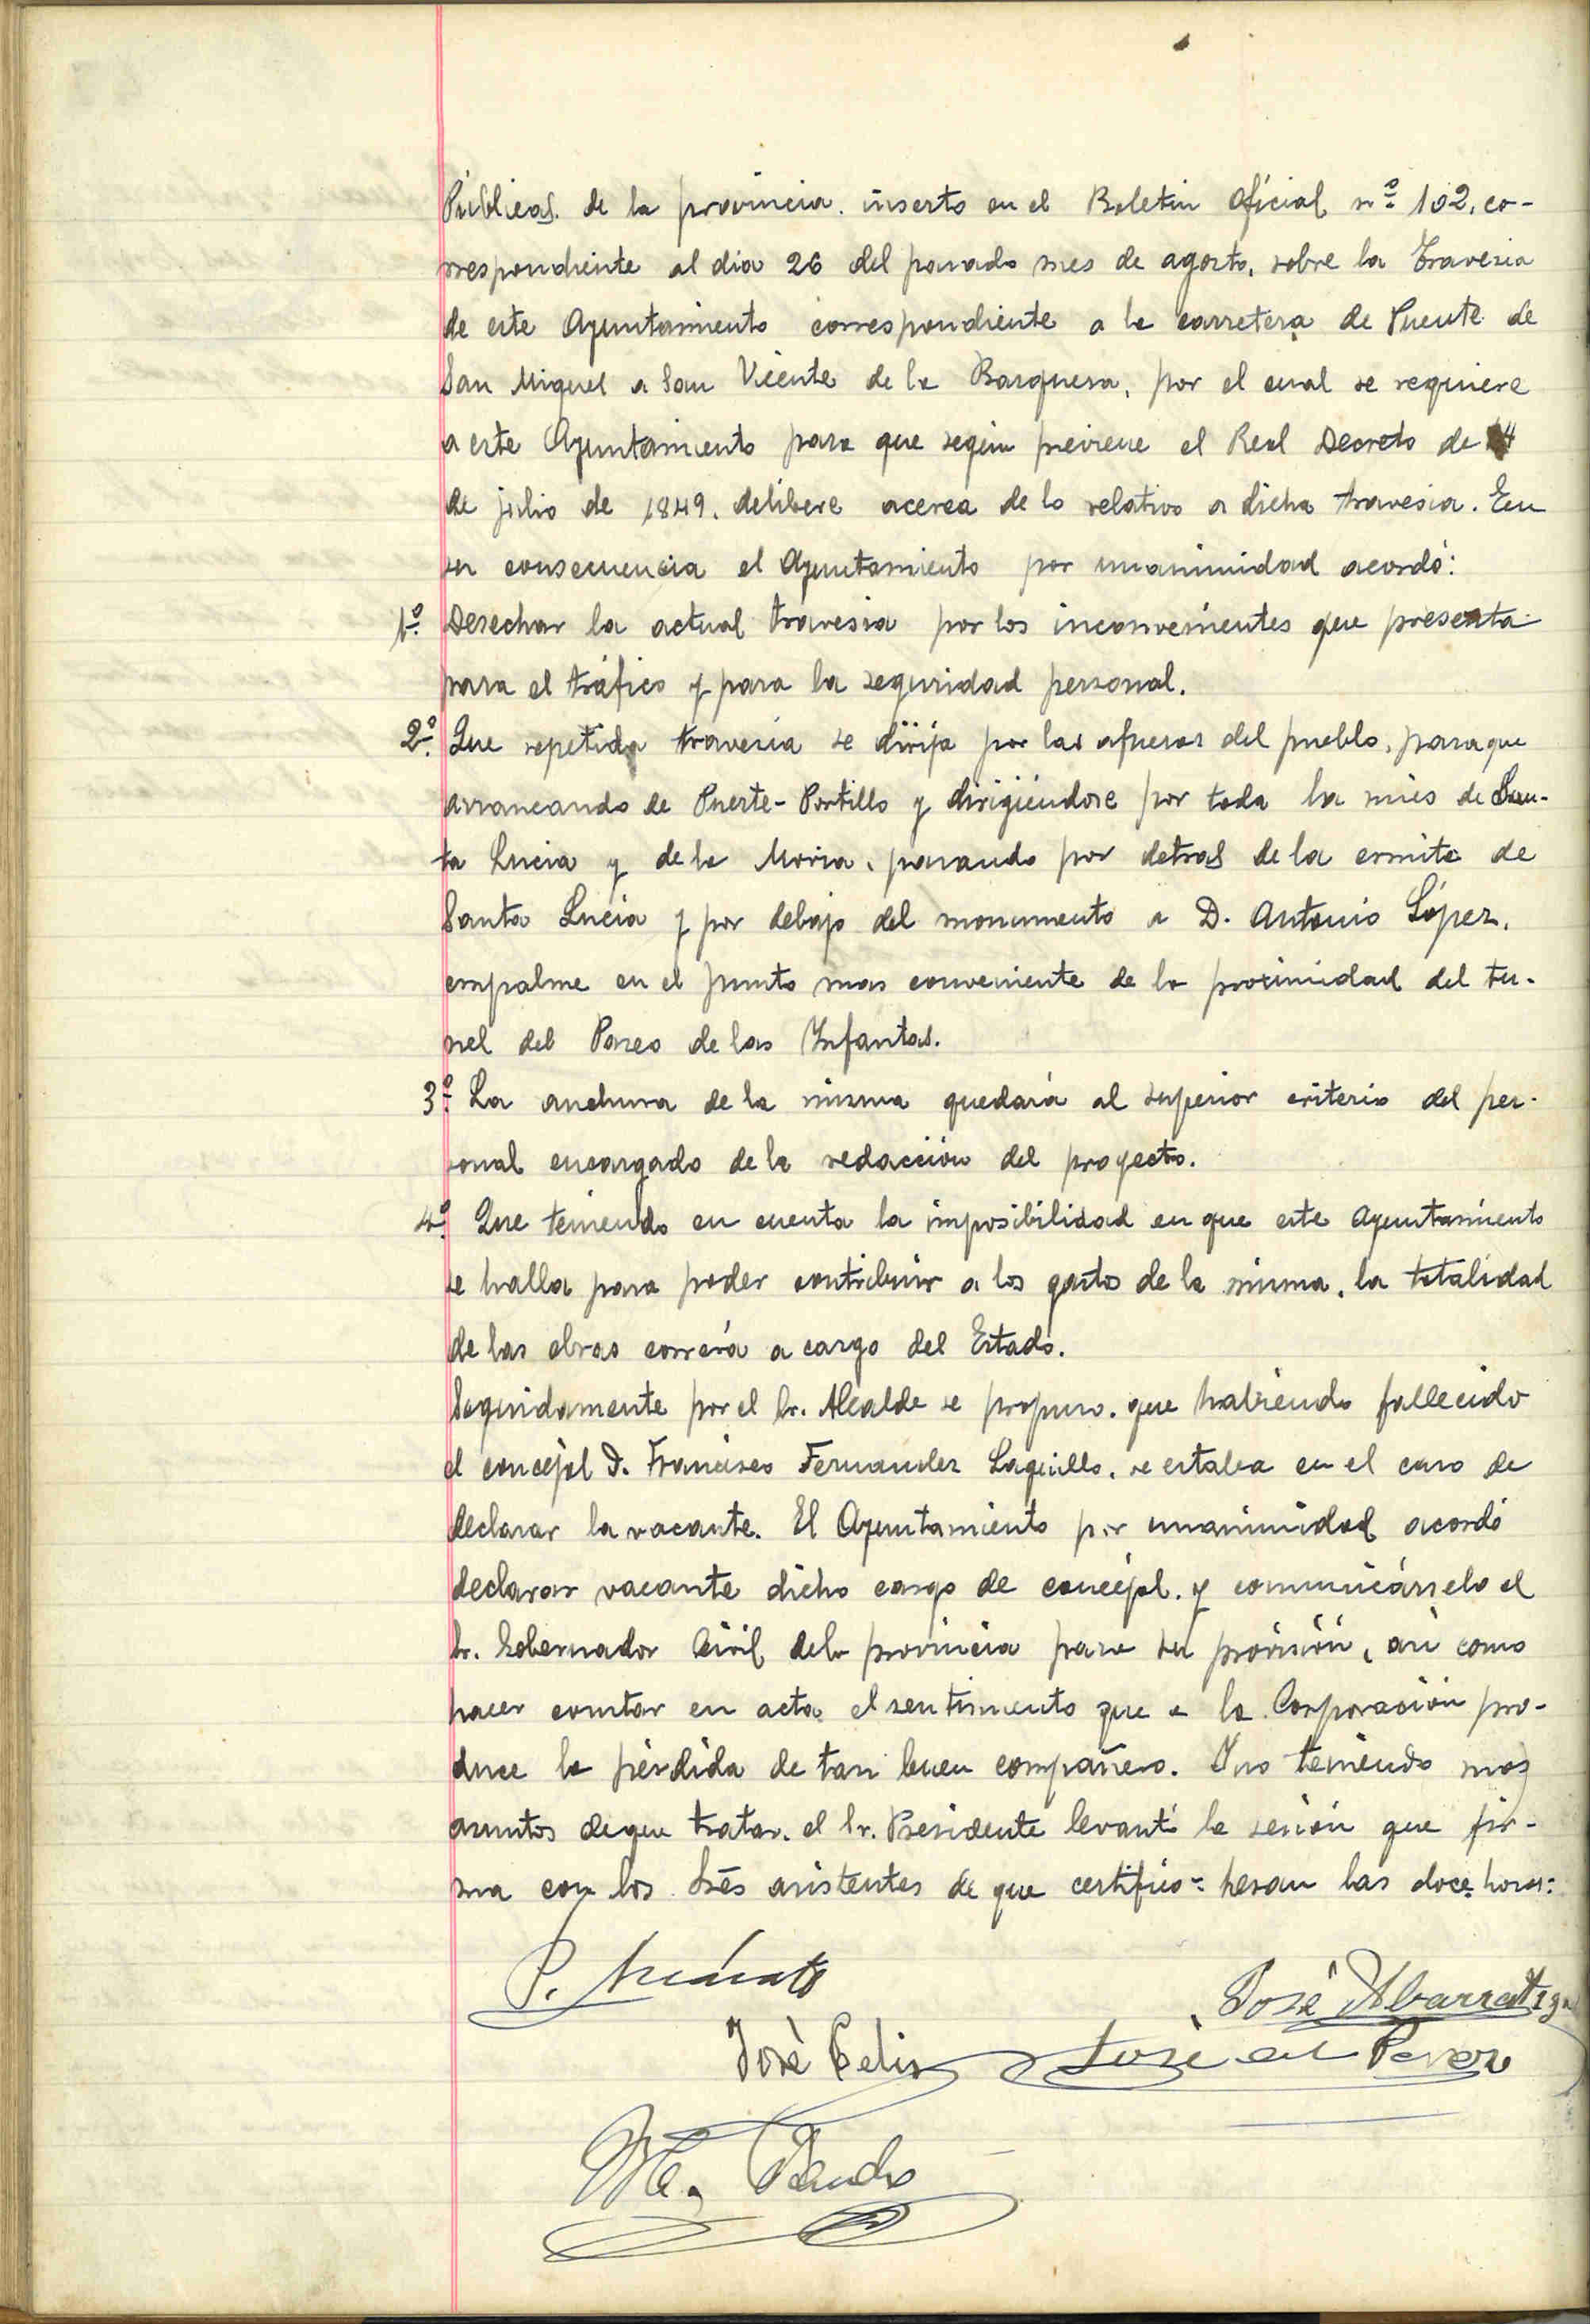 Públicas de la provincia. inserto en el Boletin Oficial nº 102, co-
rrespondiente al dia 26 del pasado mes de agosto, sobre la travesia
de este Ayuntamiento correspondiente a la carretera de Puente de
San Miguel a San Vicente de la Barquera, por el cual se requiere
a este Ayuntamiento para que según previene el Real Decreto de 14
de julio de 1849, delibere acerca de lo relativo a dicha travesia. En
su consecuencia el Ayuntamiento por unanimidad acordó:
1º. Desechar la actual travesia por los inconvenientes que presenta
para el tráfico y para la seguridad personal.
2º. Que repetida travesia se dirija por las afueras del pueblo, para que
arrancando de Puerte-Portillo y dirigiéndose por toda la mies de San-
ta Lucia y de la Moria, pasando por detras de la ermita de
Santa Lucia y por debajo del monumento a D. Antonio López,
empalme en el punto mas conveniente de la proximidad del tu-
nel del Paseo de las Infantas.
3º. La anchura de la misma quedará al superior criterio del per-
sonal encargado de la redacción del proyecto.
4º. Que teniendo en cuenta la imposibilidad en que este Ayuntamiento
se halla para poder contribuir a los gastos de la misma, la totalidad
de las obras correrá a cargo del Estado.
Seguidamente por el Sr. Alcalde se propuso, que habiendo fallecido
el concejal D. Francisco Fernandez Laguillo, se estaba en el caso de
declarar la vacante. El Ayuntamiento por unanimidad acordó
declarar vacante dicho cargo de concejal, y comunicárselo al
Sr. Gobernador Civil de la provincia para su provisión, asi como
hacer constar en acta el sentimiento que a la Corporación pro-
duce la pérdida de tan buen compañero. Y no teniendo mas
asuntos de que tratar, el Sr. Presidente levantó la sesión que fir-
ma con los Srés asistentes de que certifico = heran las doce horas =
P.
José Abarrategui
José Celis José del Perojo
M. Pando